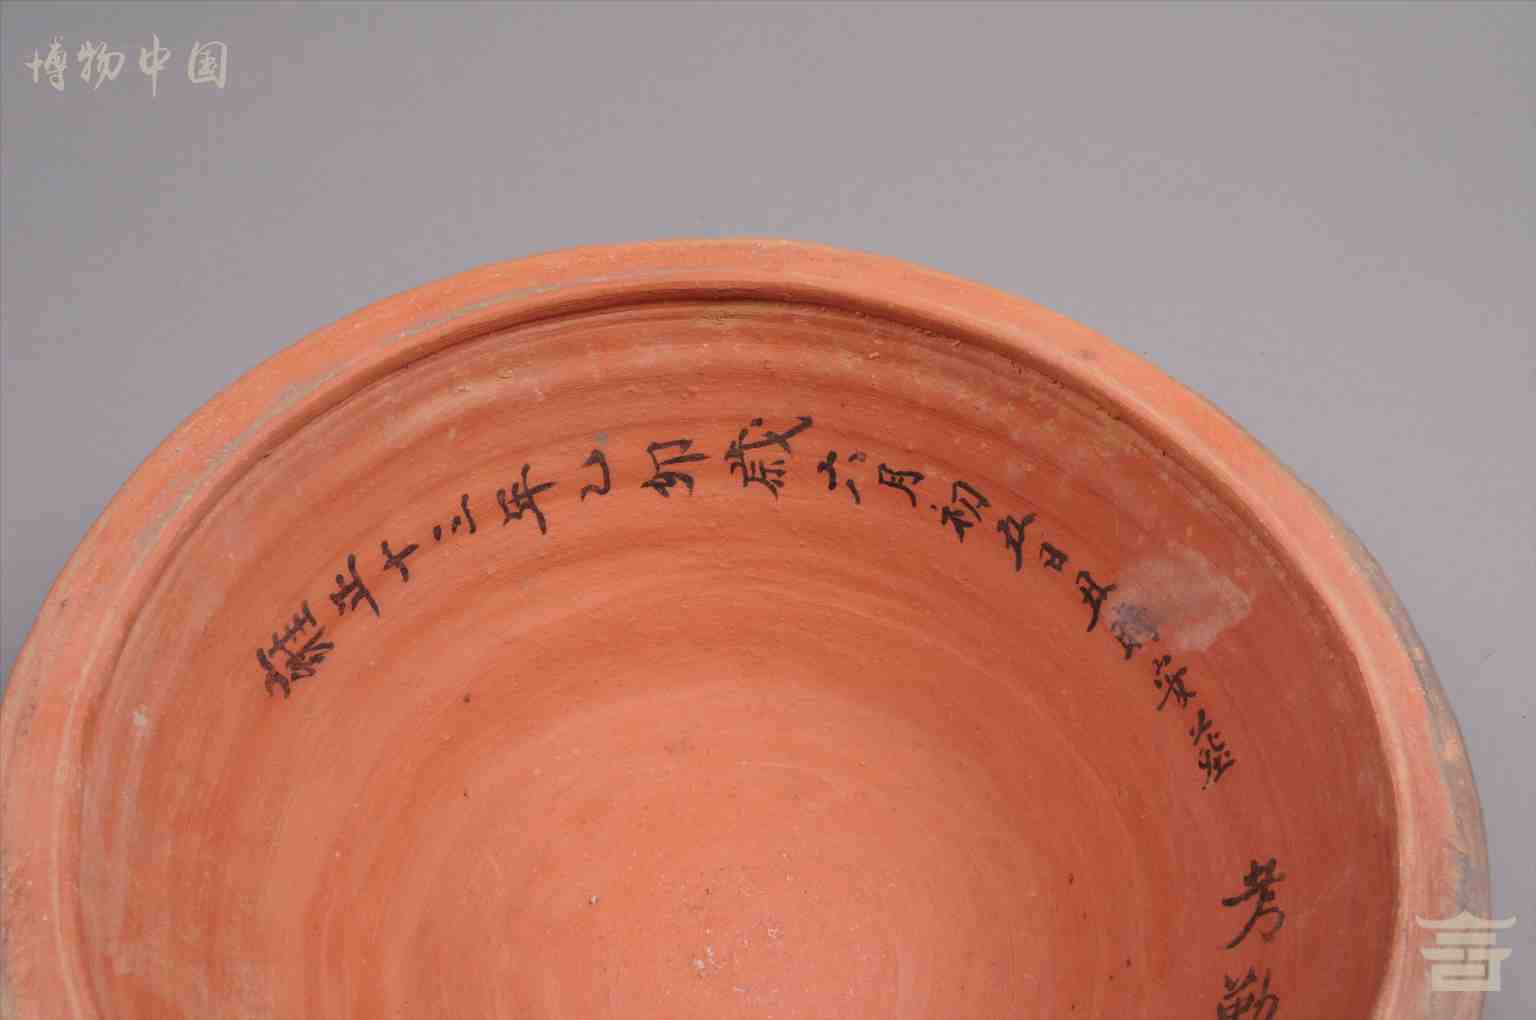 博物中国
雍正十三年乙卯歲六月初五日丑時安葬
考